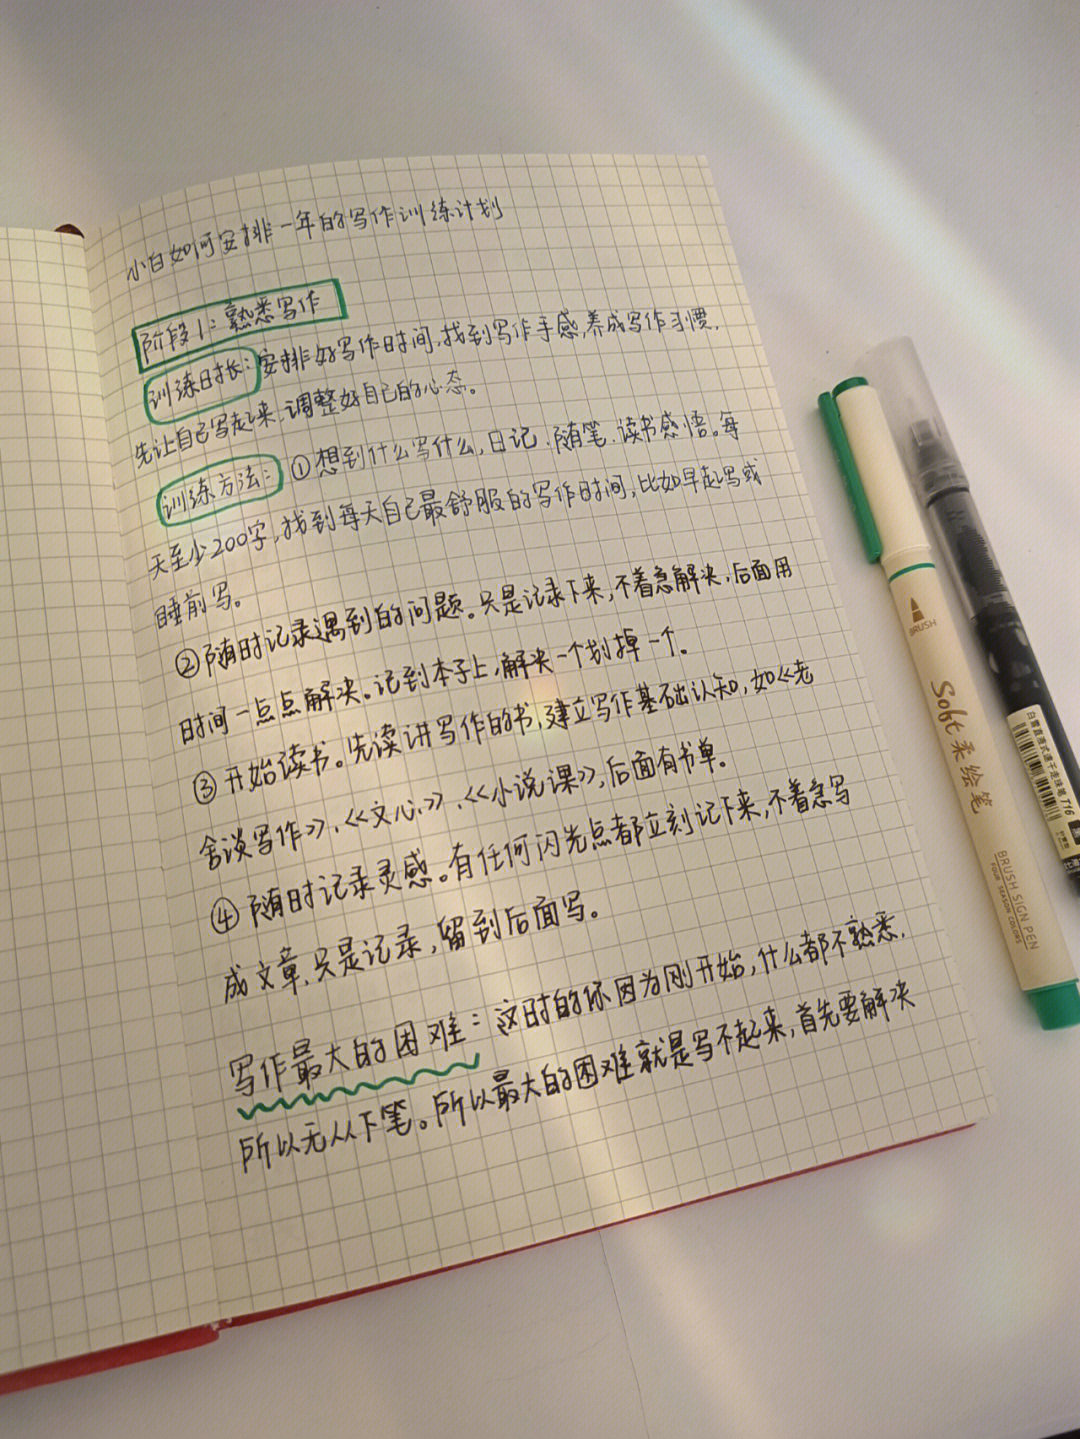 小白如何安排一年的写作训练计划
阶段1：熟悉写作
训练时长：安排好写作时间，找到写作手感，养成写作习惯，
先让自己写起来，调整好自己的心态。
训练方法：①想到什么写什么，日记、随笔、读书感悟。每
天至少200字，找到每天自己最舒服的写作时间，比如早起写或
睡前写。
②随时记录遇到的问题。只是记录下来，不着急解决，后面用
时间一点点解决。记到本子上，解决一个划掉一个。
③开始读书。先读讲写作的书，建立写作基础认知，如《老
舍谈写作》、《文心》、《小说课》，后面有书单。
④随时记录灵感。有任何闪光点都立刻记下来，不着急写
成文章，只是记录，留到后面写。
写作最大的困难：这时的你因为刚开始，什么都不熟悉，
所以无从下笔。所以最大的困难就是写不起来，首先要解决
BRUSH
Soft 柔绘笔
BRUSH SIGN PEN
FOUR SEASON COLORS
白雪直液式速干走珠笔 T16